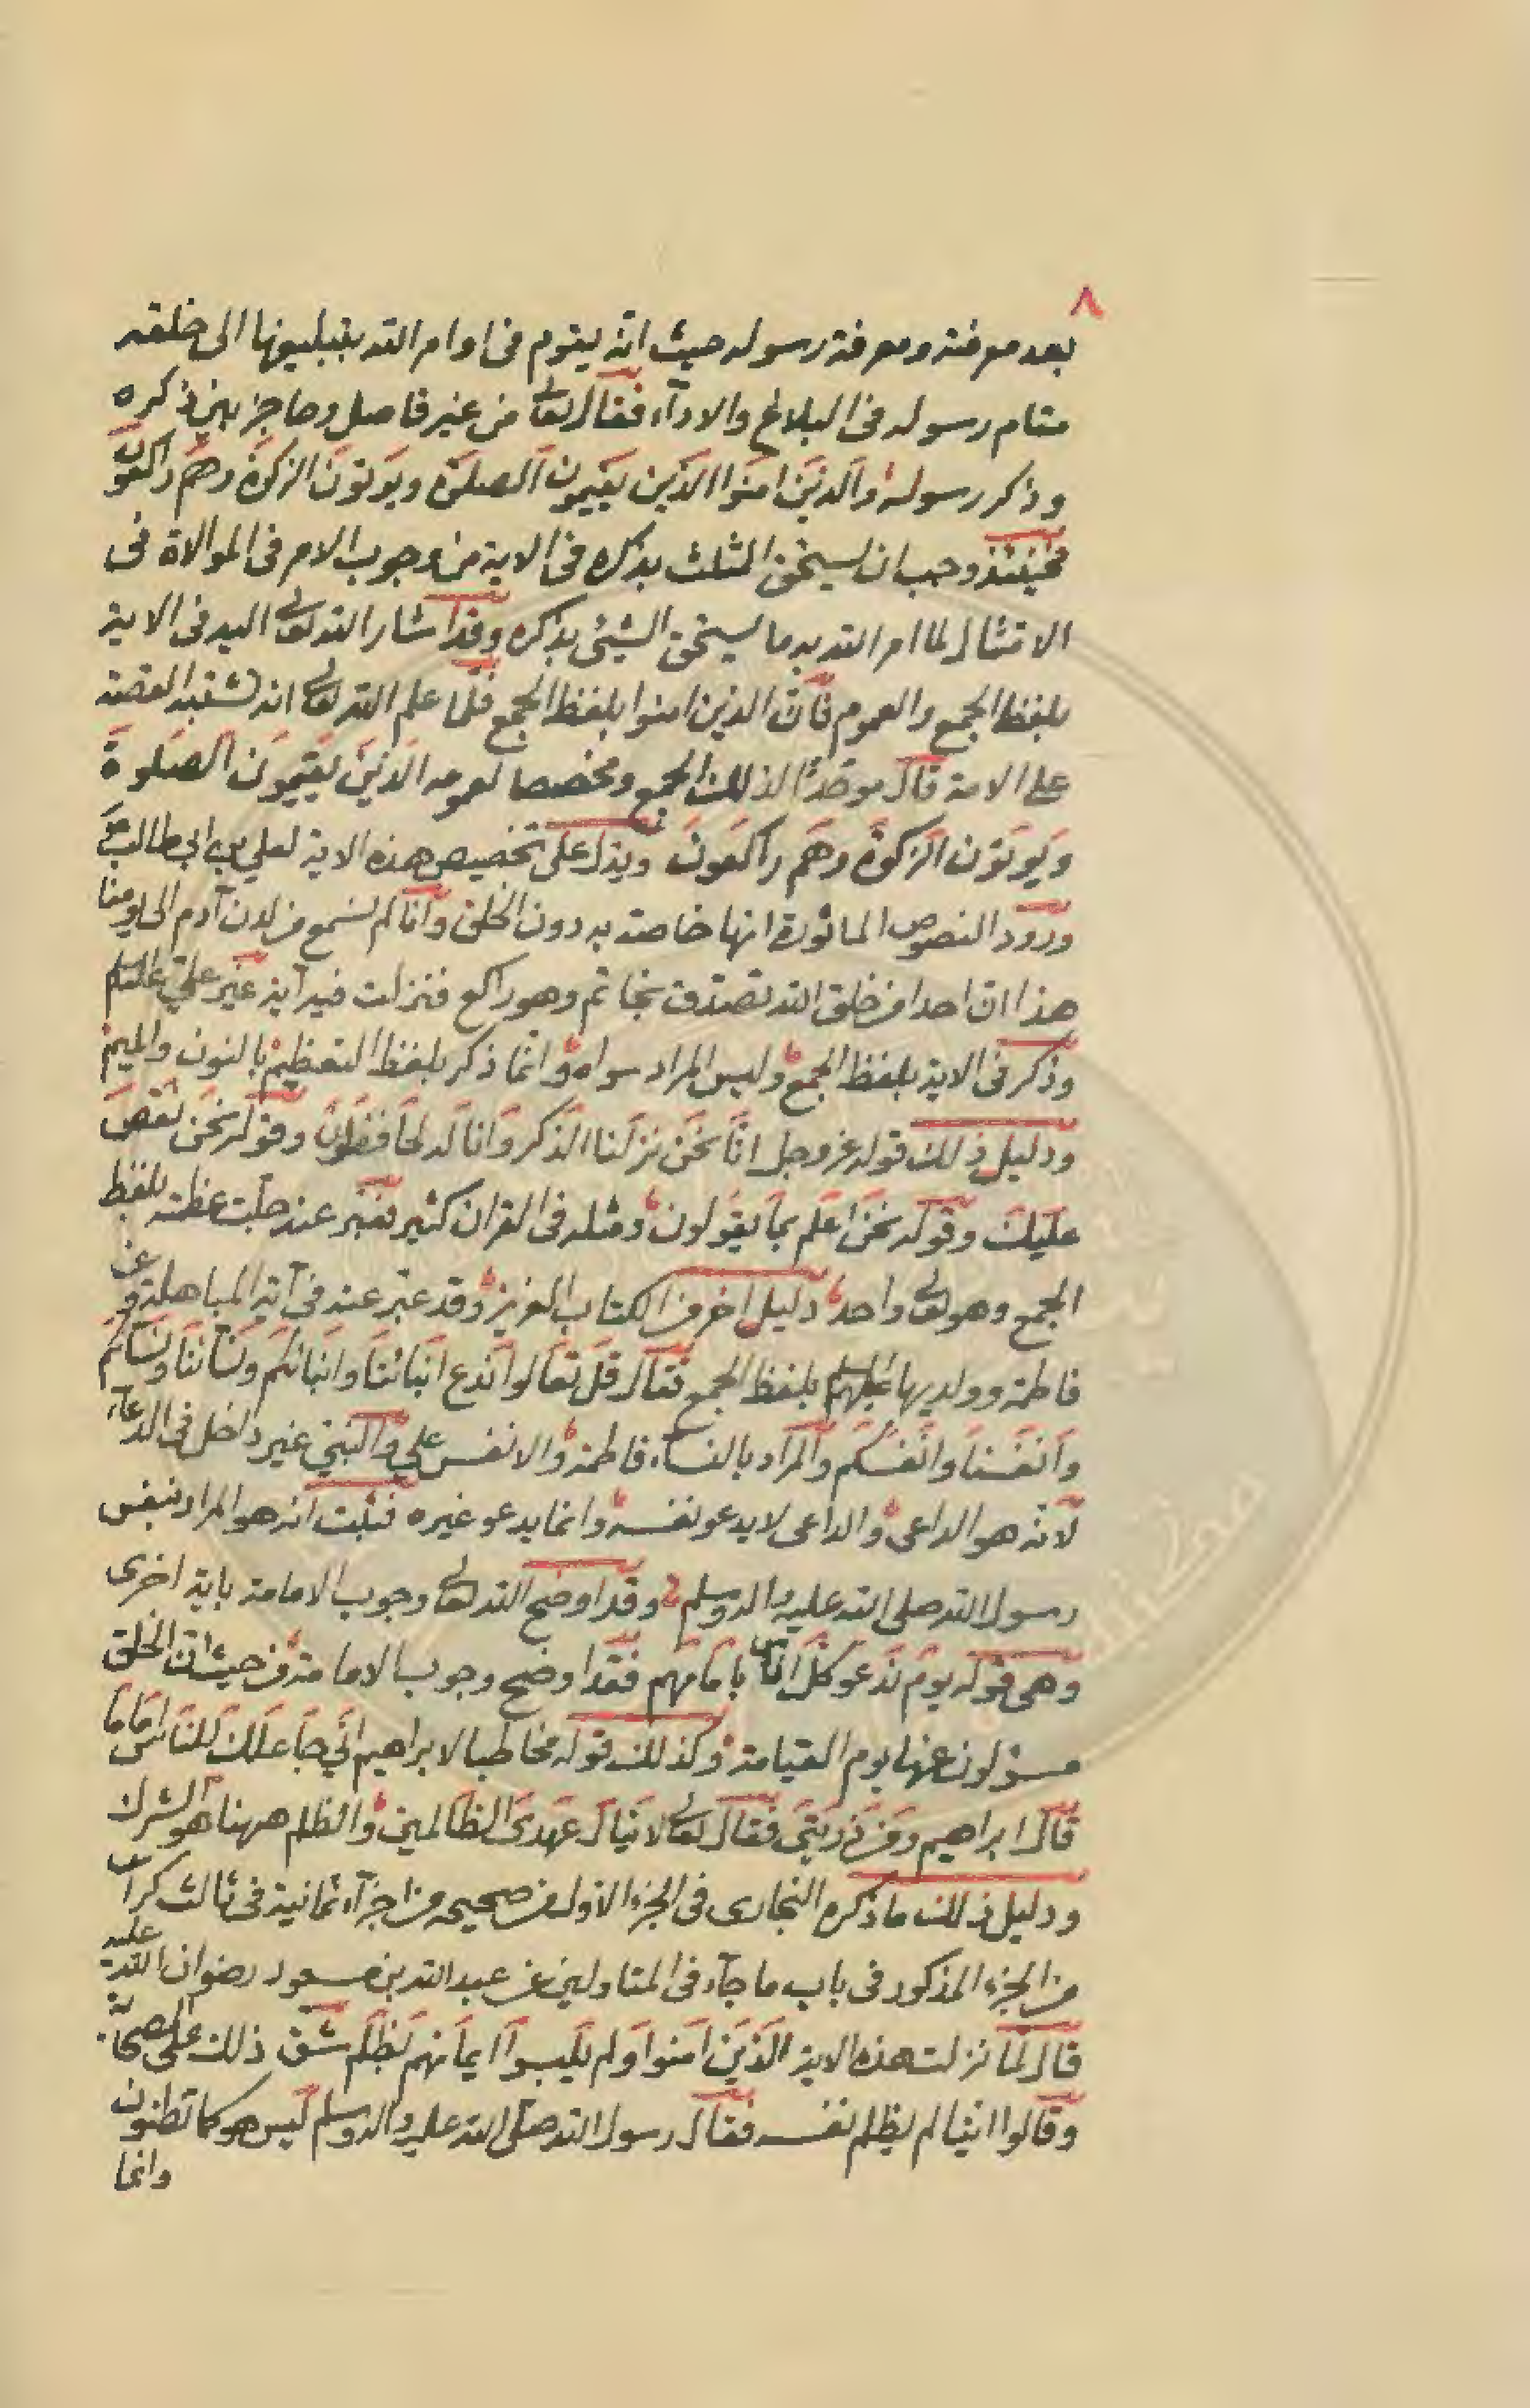 ٨
بعد معرفته ومعرفة رسوله حيث انه يقوم فى اوامر الله بتبليغها الى خلقه
مقام رسوله فى البلاغ والاداء فقال تعالى من غير فاصل وحاجز بين ذكره
وذكر رسوله والذين امنوا الذين يقيمون الصلوة ويوتون الزكوة وهم راكعون
فحينئذ وجب ان يستحق المثلث بذكره فى الاية من وجوب الامر فى الموالاة فى
الامتثال لما امر الله به ما يستحق الشيئ بذكره وقد اشار الله تعالى اليه فى الاية
بلفظ الجمع والعموم فان الذين امنوا بلفظ الجمع فلما علم الله تعالى انه تشتبه القصة
على الامة قال موحدا لذلك الجمع ومخصصا لعمومه الذين يقيمون الصلوة
ويوتون الزكوة وهم راكعون ويدل على تخصيص هذه الاية لعلي بن ابى طالب
ورود النصوص الماثورة انها خاصة به دون الخلق وانا لم نسمع من لدن آدم الى يومنا
هذا ان احدا من خلق الله تصدق بخاتم وهو راكع فنزلت فيه آية غير علي عليه السلام
وذكر فى الاية بلفظ الجمع وليس المراد سواه وانما ذكر بلفظ التعظيم بالنون والميم
ودليل ذلك قوله عز وجل انا نحن نزلنا الذكر وانا له لحافظون وقوله نحن نقص
عليك وقوله نحن اعلم بما يقولون ومثله فى القران كثير يعبر عند جلت عظمته بلفظ
الجمع وهو تعالى واحد دليل اخر من الكتاب العزيز وقد عبر عنه فى آية المباهلة وعن
فاطمة وولديها عليهم السلام بلفظ الجمع فقال قل تعالوا ندع ابنائنا وابنائكم ونسائنا ونسائكم
وانفسنا وانفسكم والمراد بالنساء فاطمة والانفس علي والنبي غير داخل فى الدعاء
لانه هو الداعى والداعى لا يدعو نفسه وانما يدعو غيره فثبت انه هو المراد بنفس
رسول الله صلى الله عليه واله وسلم وقد اوضح الله تعالى وجوب الامامة باية اخرى
وهى قوله يوم ندعو كل اناس بامامهم فقد اوضح وجوب الامامة من حيث ان الخلق
مسؤلون عنها يوم القيامة وكذلك قوله مخاطبا لابراهيم اني جاعلك للناس اماما
قال ابراهيم ومن ذريتي فقال تعالى لا ينال عهدى الظالمين والظلم ههنا هو الشرك
ودليل ذلك ما ذكره البخارى فى الجزء الاول من صحيحه من اجزاء ثمانية فى ثالث كراس
من الجزء المذكور فى باب ما جاء فى المتاولين عن عبد الله بن مسعود رضوان الله عليه
قال لما نزلت هذه الاية الذين امنوا ولم يلبسوا ايمانهم بظلم شق ذلك على الصحابة
وقالوا اينا لم يظلم نفسه فقال رسول الله صلى الله عليه واله وسلم ليس هو كما تظنون
وانما